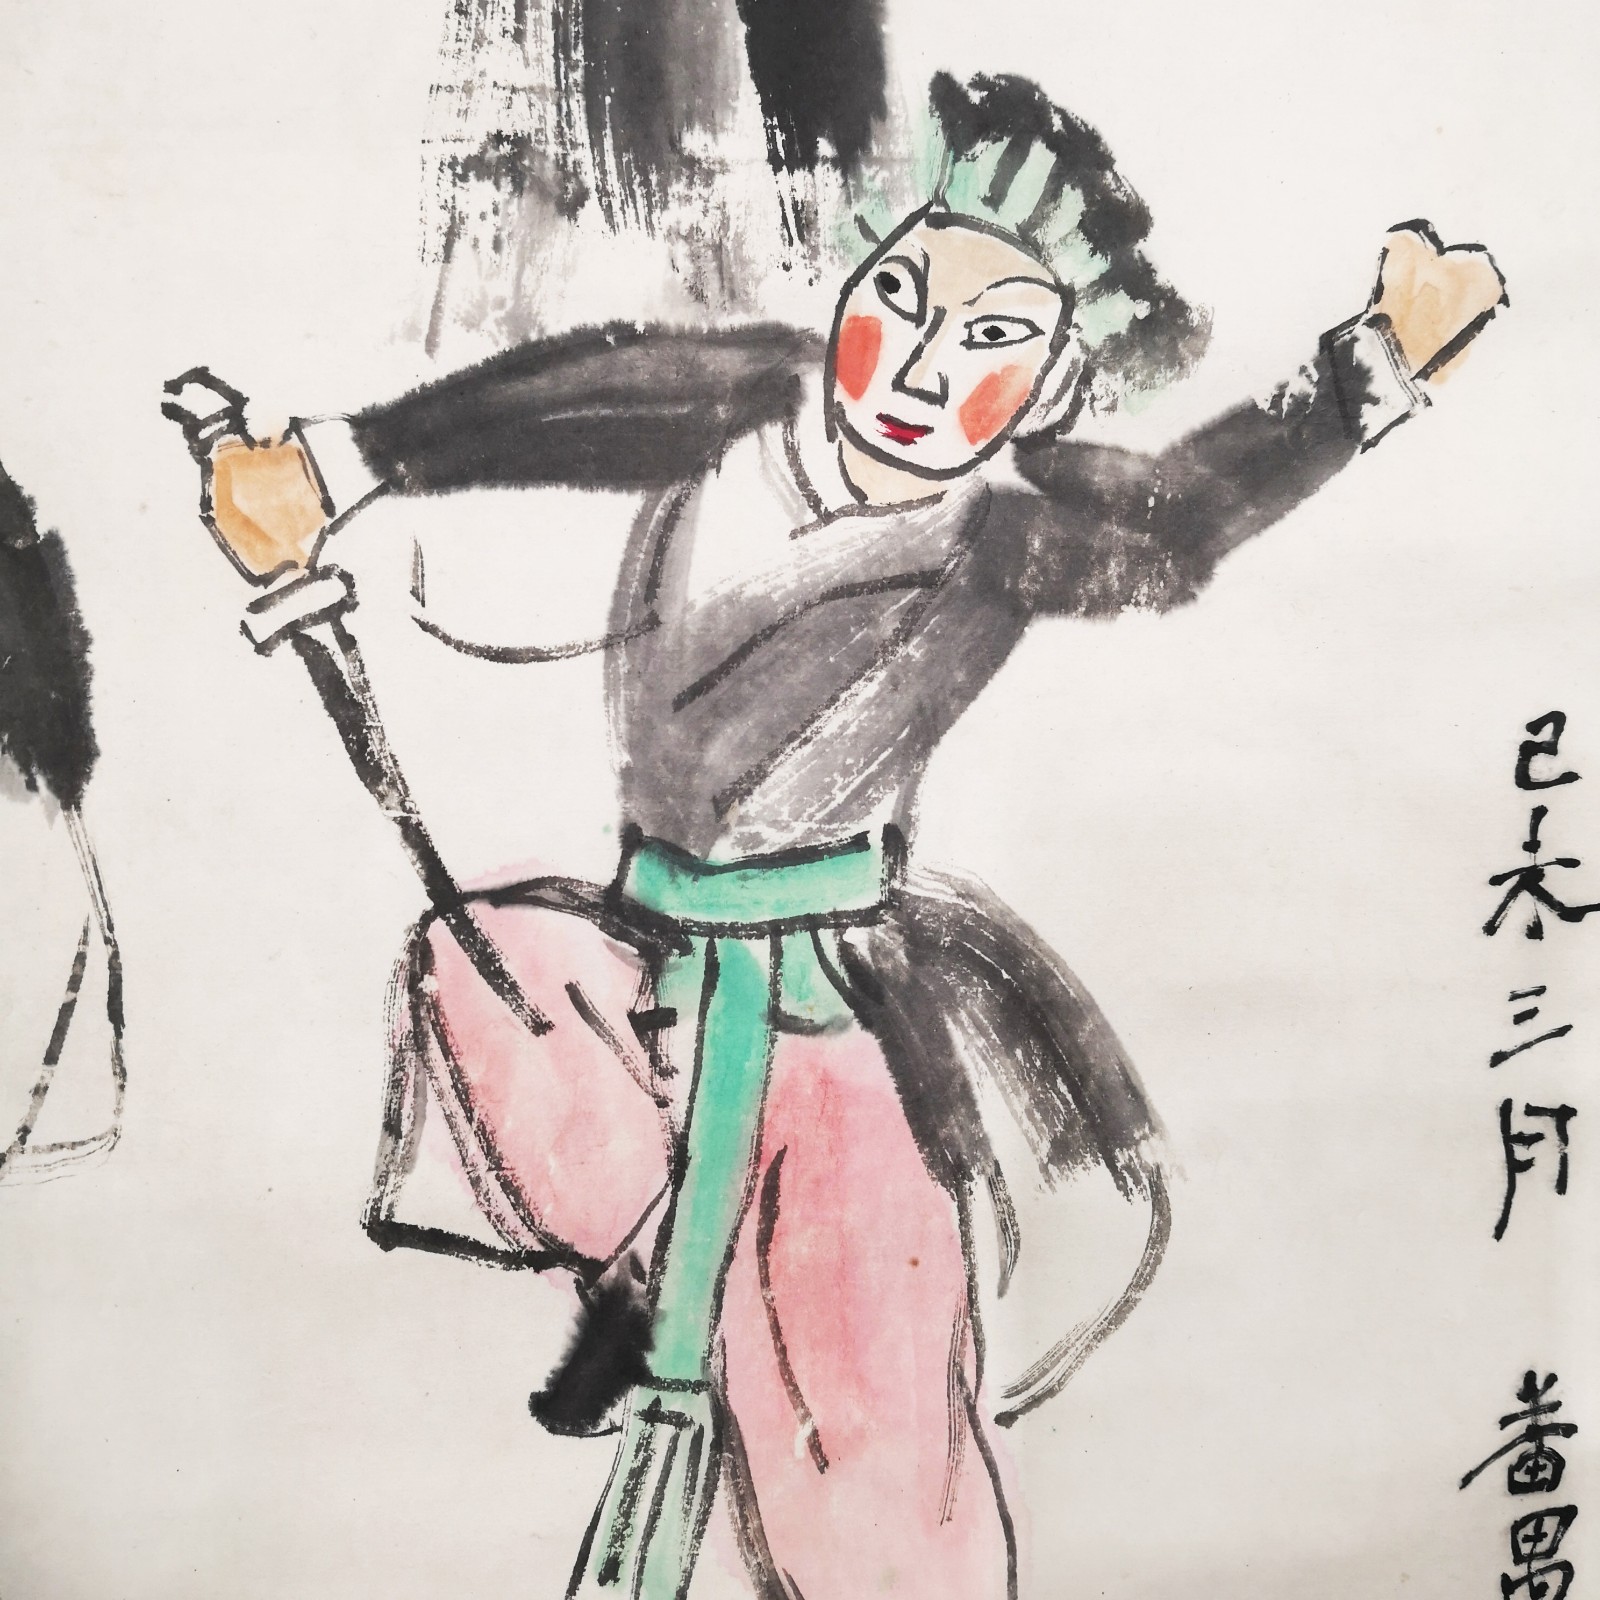 己未三月 番禺